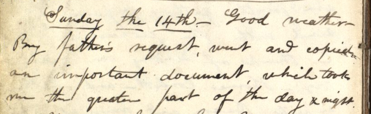 Sunday the 14th – Good weather
By father's request, went and copied
an important document, which took
me the greater part of the day & night.